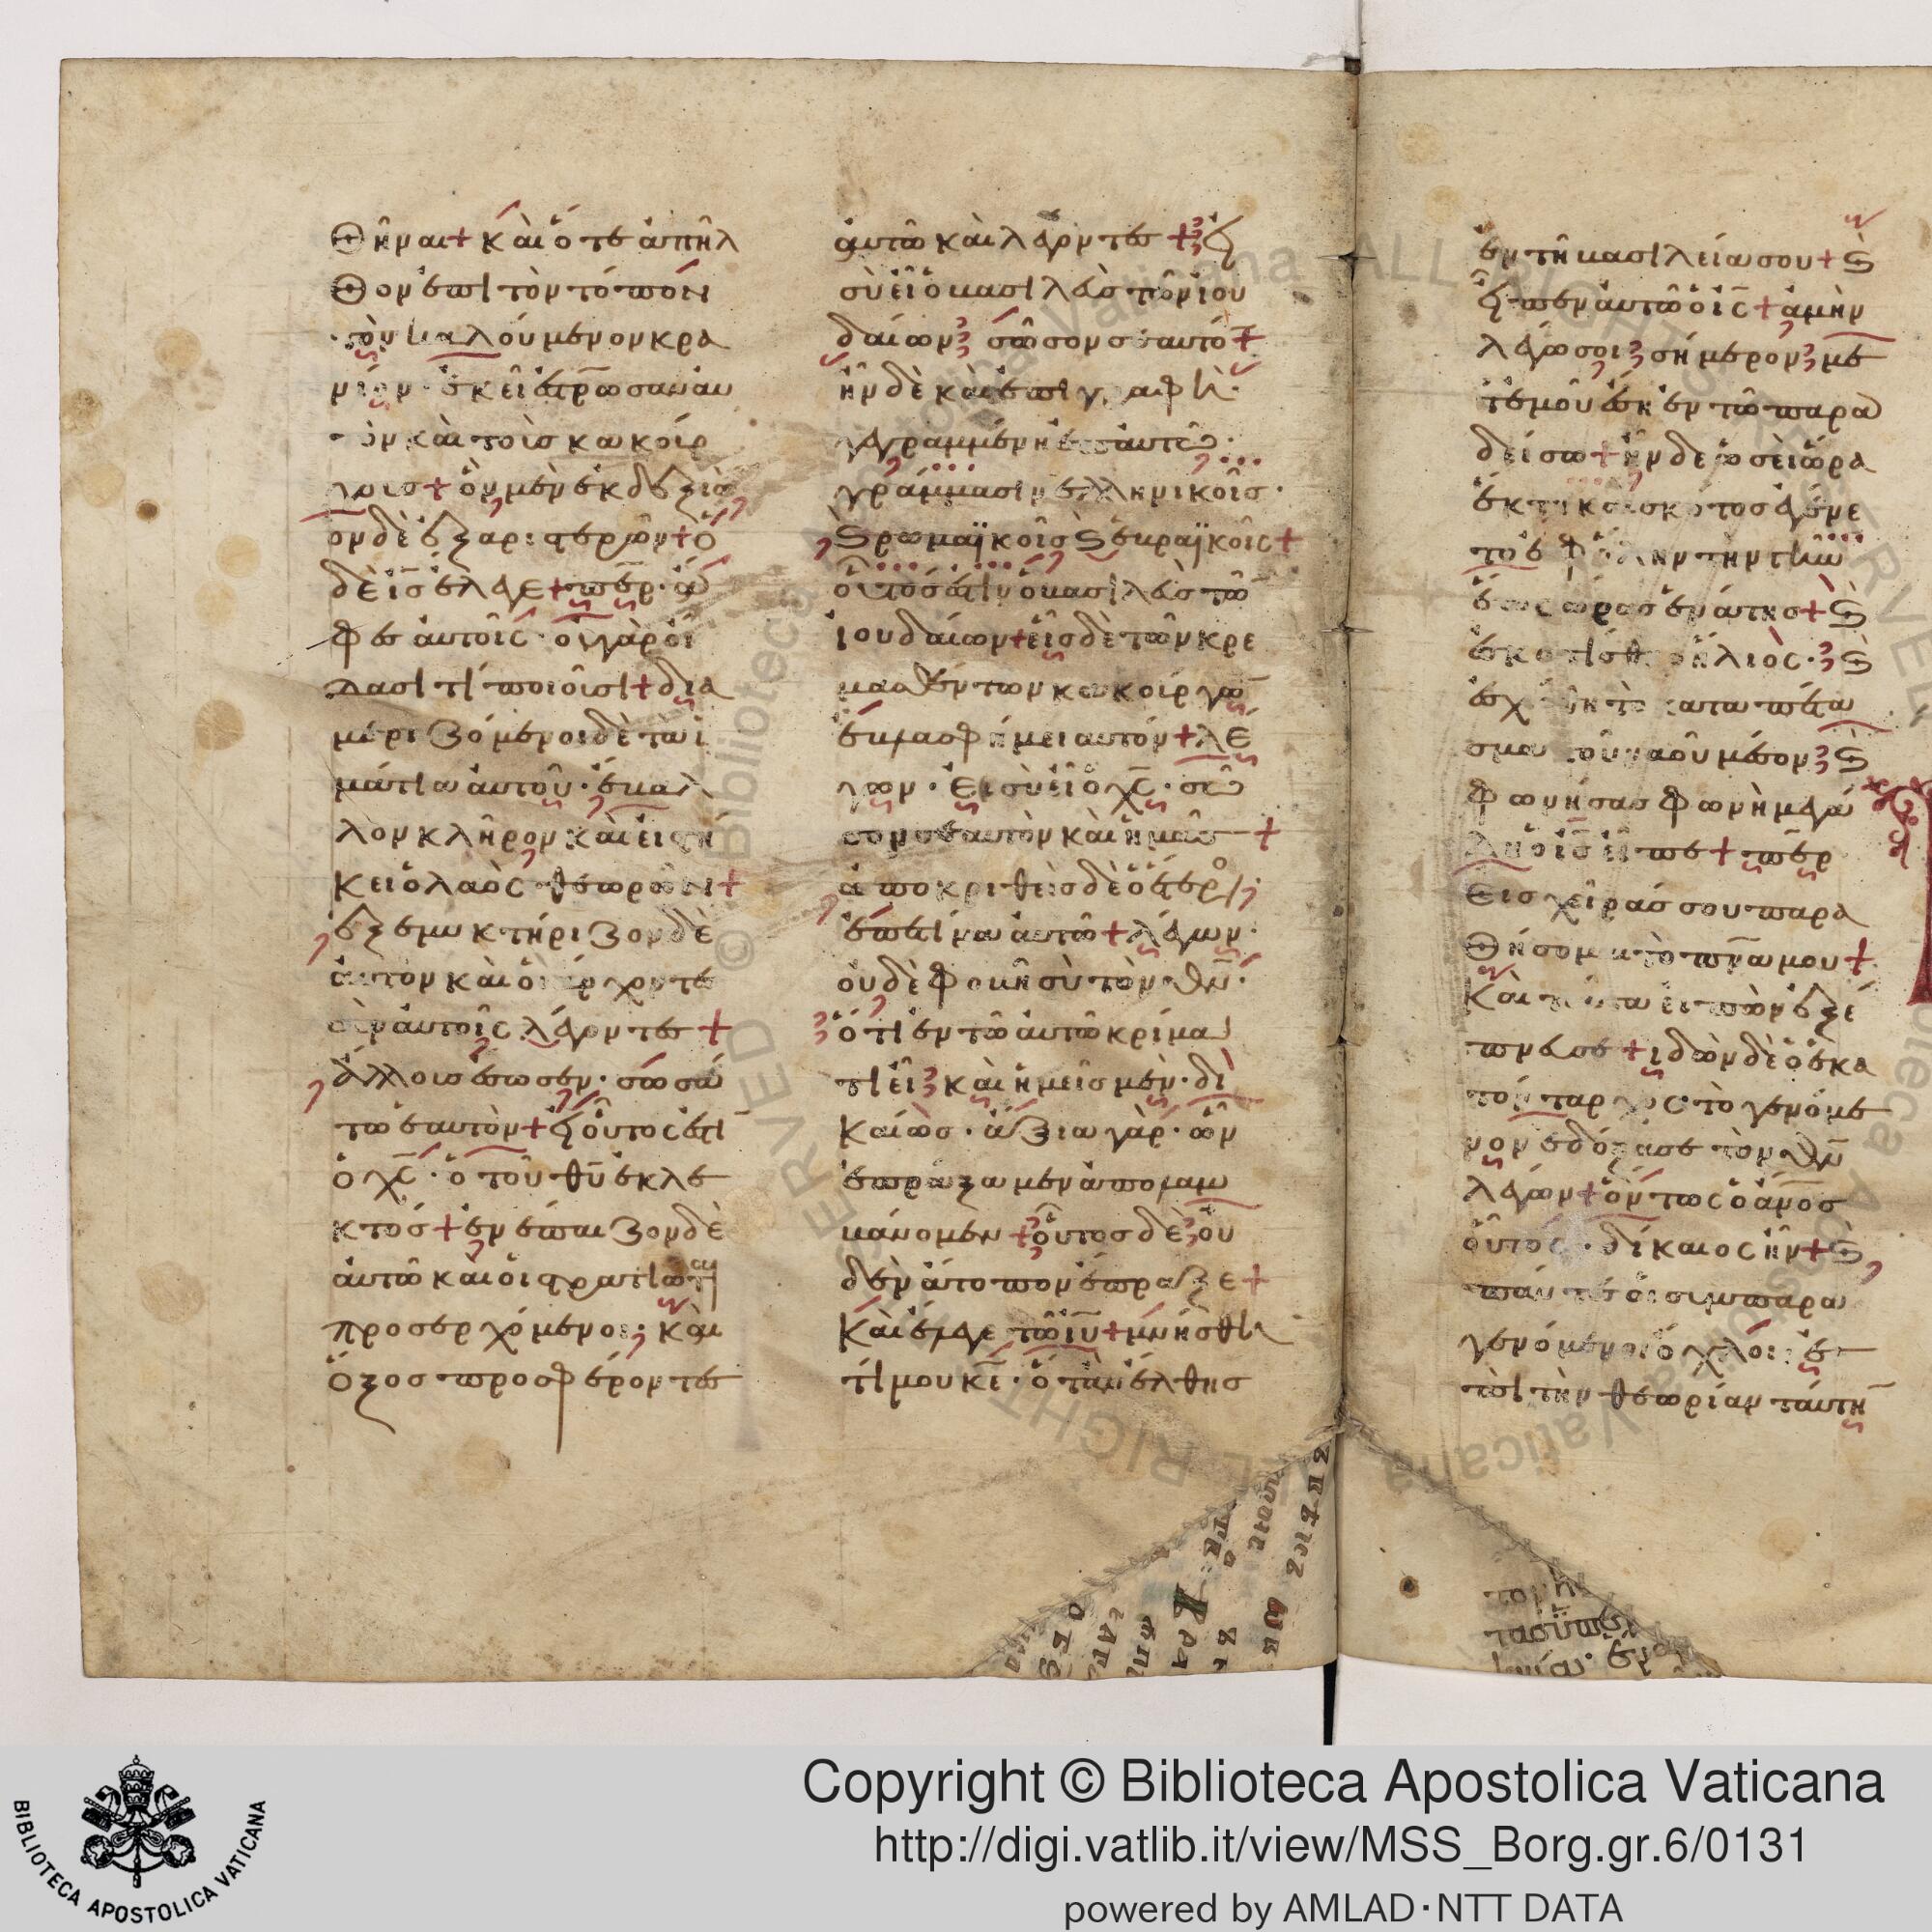 θῆναι + καὶ ὅτε ἀπῆλ
θον ἐπὶ τὸν τόπον
τὸν καλούμενον κρα
νίον · ἐκεῖ ἐστρωσαν αυ
τὸν καὶ τοὺσ κακούρ
γουσ + ὃν μὲν ἐκ δεξιῶ
ὃν δὲ ἐξ ἀριστερῶν + ὁ
δὲ ἰσ ἔλεγε + περ · ἄ
φεσ αὐτοῖσ · οὐ γὰρ οἴ
δασι τί ποιοῦσι + δια
μεριζόμενοι δὲ τὰ ἱ
μάτια αὐτοῦ · ἔβαλ
λον κλῆρον καὶ εἱστή
κει ὁ λαὸσ θεωρῶν +
ἐξεμυκτήριζον δὲ
αὐτὸν καὶ οἱ ἄρχοντεσ
σὺν αὐτοῖσ λέγοντεσ +
ἄλλουσ ἔσωσεν · σωσά
τω ἑαυτὸν + εἰ οὗτοσ ἐστὶ
ὁ χσ · ὁ τοῦ θυ ἐκλε
κτόσ + ἐνέπαιζον δὲ
αὐτῶ καὶ οἱ στρατιῶται
προσερχόμενοι · καὶ
ὄξοσ προσφέροντεσ
αὐτῶ καὶ λέγοντεσ + εἰ
σὺ εἶ ὁ βασιλεὺσ τῶν ἰου
δαίων · σῶσον σεαυτόν +
ἦν δὲ καὶ ἐπιγραφὴ
γεγραμμένη ἐπ αὐτῶ ·
γράμμασιν ἑλληνικοῖσ ·
ϗ ρωμαϊκοῖσ ϗ ἑβραϊκοῖσ +
οὗτόσ ἐστὶν ὁ βασιλεὺσ τῶ
ἰουδαίων + εἷσ δὲ τῶν κρε
μασθέντων κακούργω
ἐβλασφήμει αὐτόν + λέ
γων · εἰ σὺ εἶ ὁ χσ · σῶ
σον σεαυτὸν καὶ ἡμᾶσ +
ἀποκριθεὶσ δὲ ὁ ἕτεροσ
ἐπετίμα αὐτῶ + λέγων ·
οὐδὲ φοβῆ σὺ τὸν θν ·
ὅτι ἐν τῶ αὐτῶ κρίμα
τι εἶ · καὶ ἡμεῖσ μὲν · δι
καίωσ · ἄξια γὰρ · ὧν
ἐπράξαμεν ἀπολαμ
βάνομεν + οὗτοσ δὲ οὐ
δὲν ἄτοπον ἔπραξε +
καὶ ἔλεγε τῶ ιυ + μνήσθη
τί μου κε · ὅταν ἔλθησ
ἐν τῆ βασιλεία σου + ϗ
εἶπεν αὐτῶ ὁ ισ + ἀμὴν
λέγω σοι · σήμερον · με
τ ἐμοῦ ἔση ἐν τῶ παρα
δείσω + ἦν δὲ ὡσεὶ ὥρα
ἕκτη καὶ σκότοσ ἐγένε
το ἐφ ὅλην τὴν γῆν
ἕωσ ὥρασ ἐνάτησ + ϗ
ἐσκοτίσθη ὁ ἥλιοσ · ϗ
ἐσχίσθη τὸ καταπέτα
σμα τοῦ ναοῦ μέσον · ϗ
φωνήσασ φωνῆ μεγά
λη ὁ ισ εἶπε + περ
εἰσ χεῖράσ σου παρα
θήσομαι τὸ πνα μου +
καὶ ταῦτα εἰπὼν ἐξέ
πνευσε + ἰδὼν δὲ ὁ ἑκα
τόνταρχοσ τὸ γενόμε
νον ἐδόξασε τὸν θν
λέγων + ὄντωσ ὁ ανοσ
οὗτοσ · δίκαιοσ ἦν + ϗ
πάντεσ οἱ συμπαρα
γενόμενοι ὄχλοι · ἐ
πὶ τὴν θεωρίαν ταύτη
Copyright © Biblioteca Apostolica Vaticana
http://digi.vatlib.it/view/MSS_Borg.gr.6/0131
powered by AMLAD·NTT DATA
BIBLIOTECA APOSTOLICA VATICANA